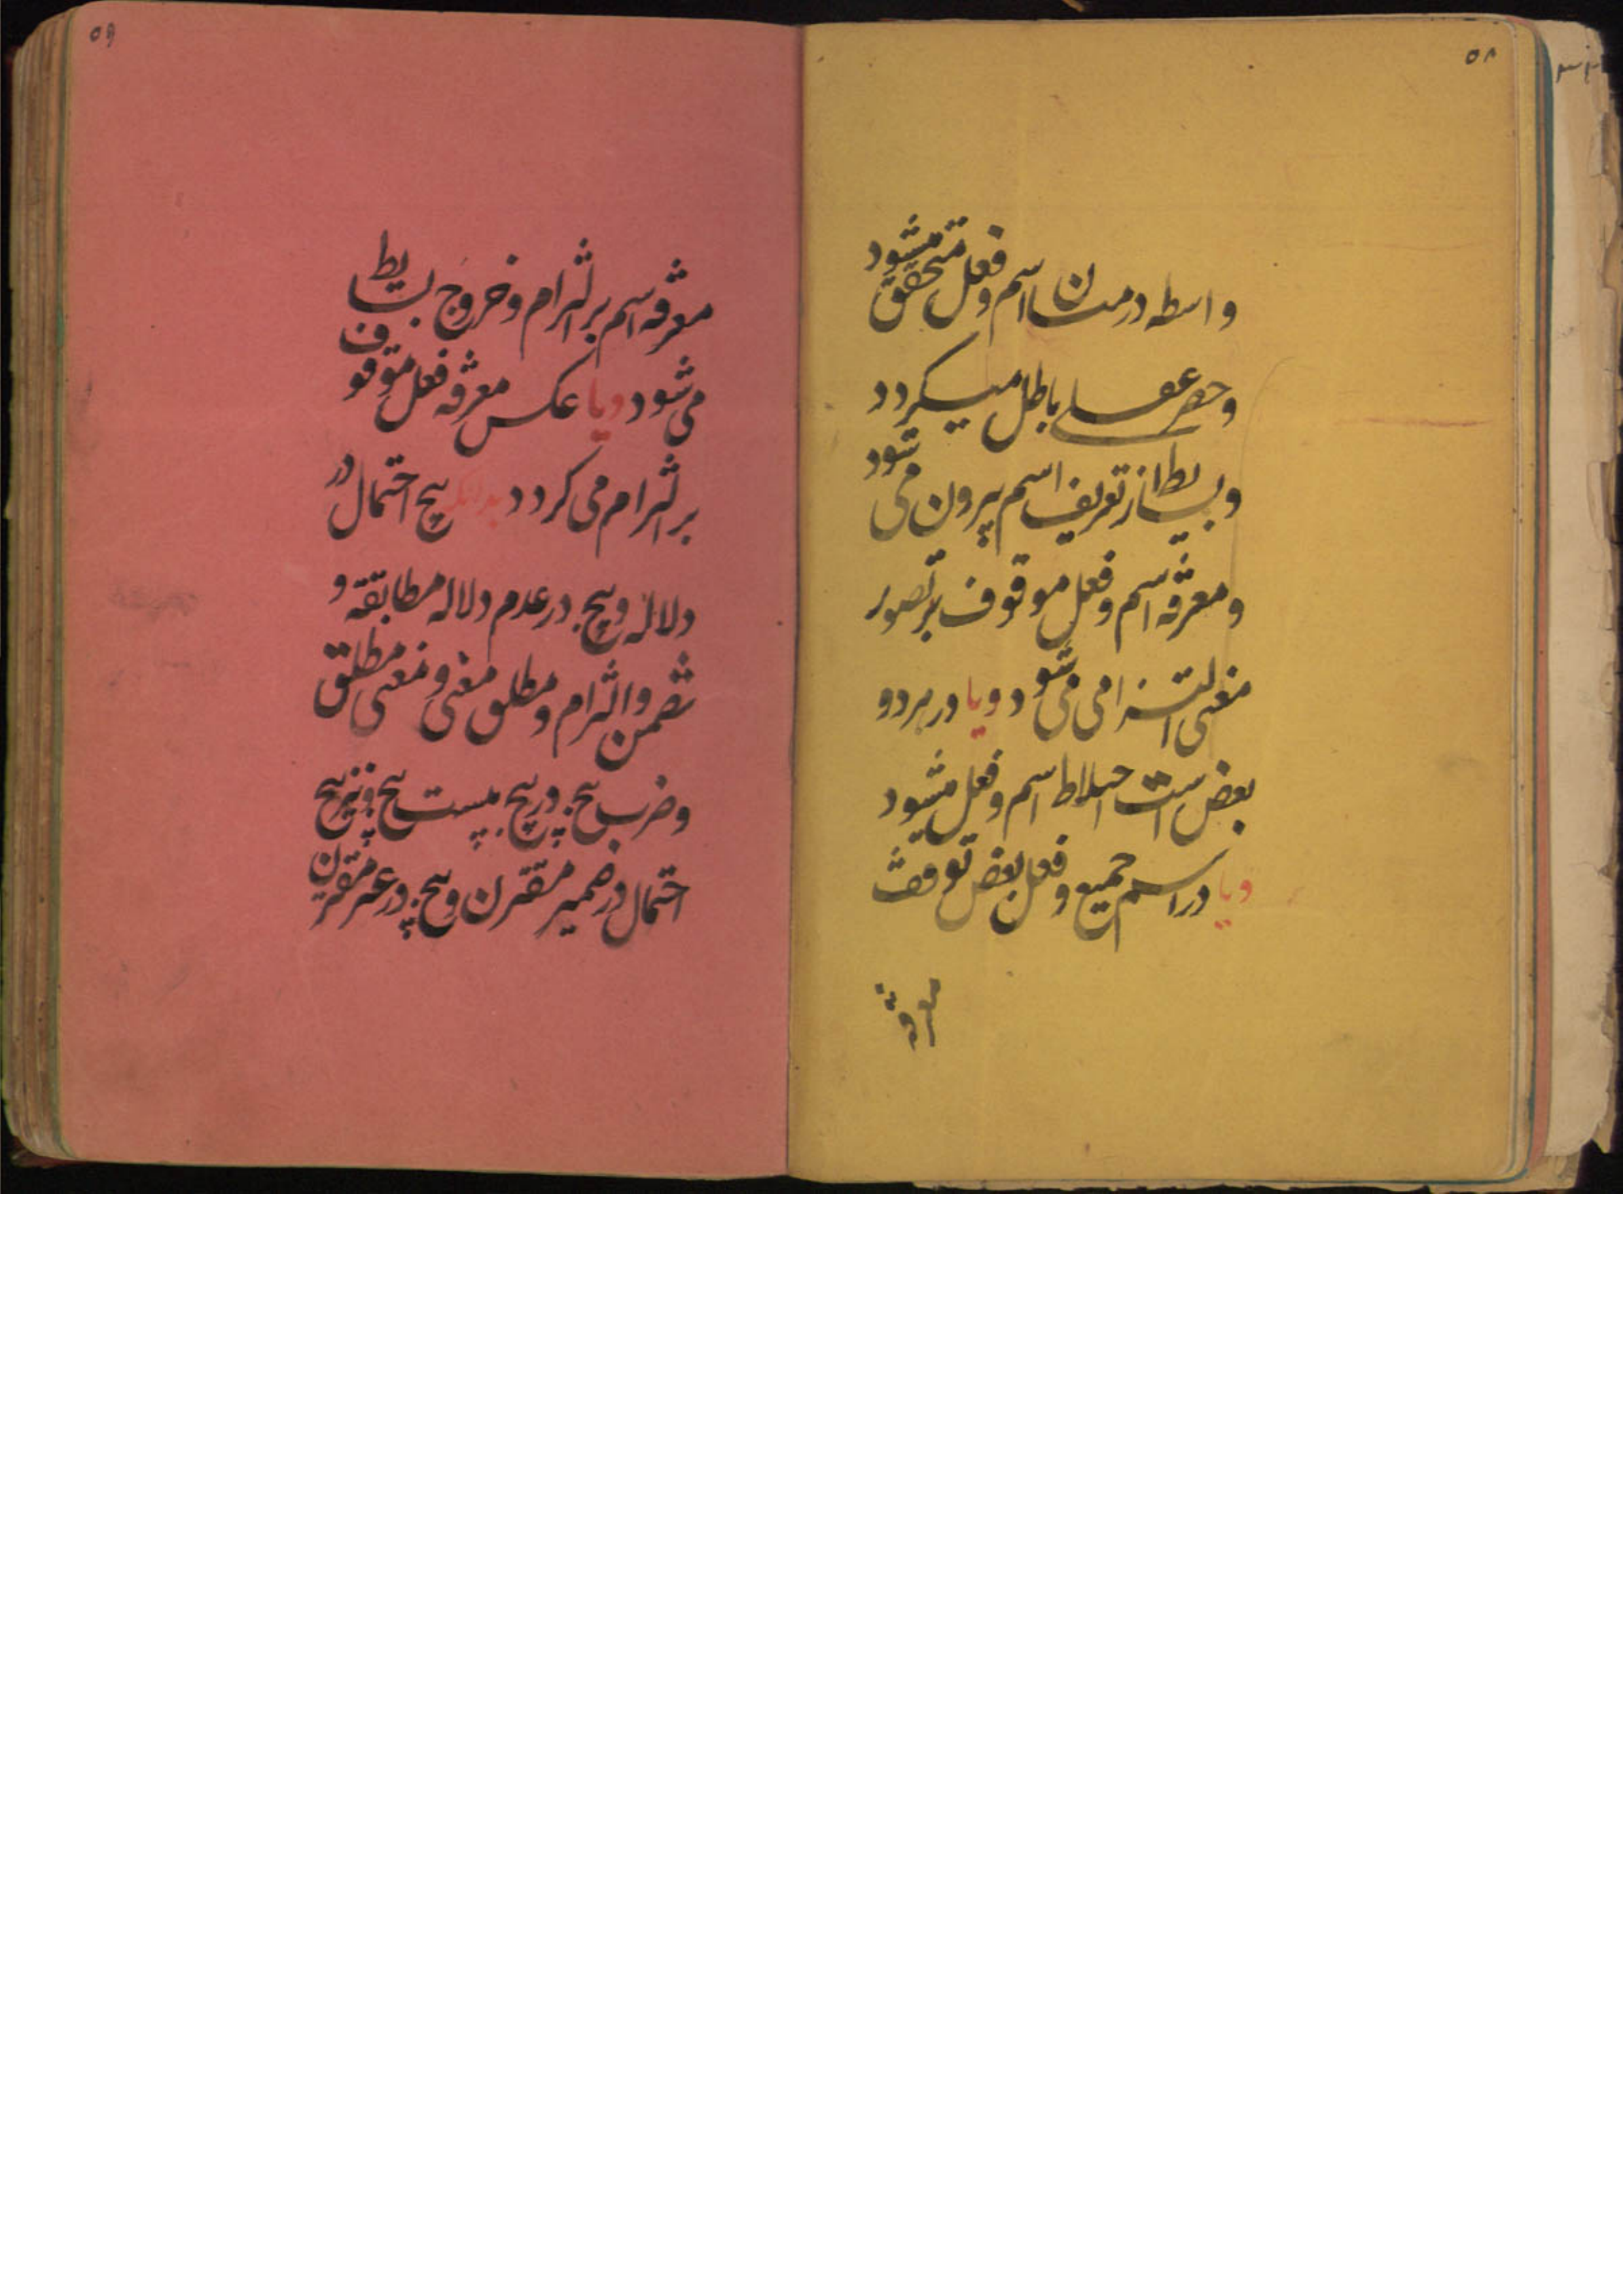 ۵۸
واسطه در میان اسم و فعل متحقق میشود
و حصر عقلی باطل میکردد
و بسایط از تعریف اسم بیرون می شود
و معرفه اسم و فعل موقوف بر تصور
معنی التزامی می شود و یا در هر دو
بعض است اختلاط اسم و فعل میشود
و یا در اسم جمیع و فعل بعض توقف
معرفه
۵۹
معرفه اسم بر التزام و خروج بسایط
می شود و یا عکس معرفه فعل موقوف
بر التزام می کردد بدانکه پنج احتمال در
دلاله و پنج در عدم دلاله مطابقه و
تضمن و التزام و مطلق معنی و معنی مطلق
و ضرب پنج در پنج بیست پنج و نیز پنج
احتمال در ضمیر مقترن و پنج در غیر مقترن